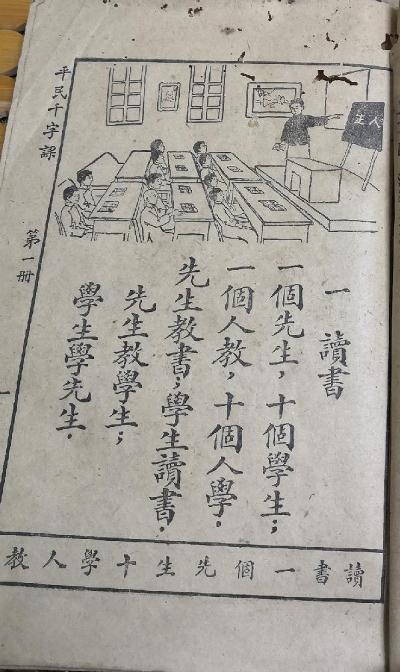 平民千字課
第一冊
一 讀書
一個先生，十個學生；
一個人教，十個人學．
先生教書；學生讀書．
先生教學生；
學生學先生．
讀書一個先生十學人教